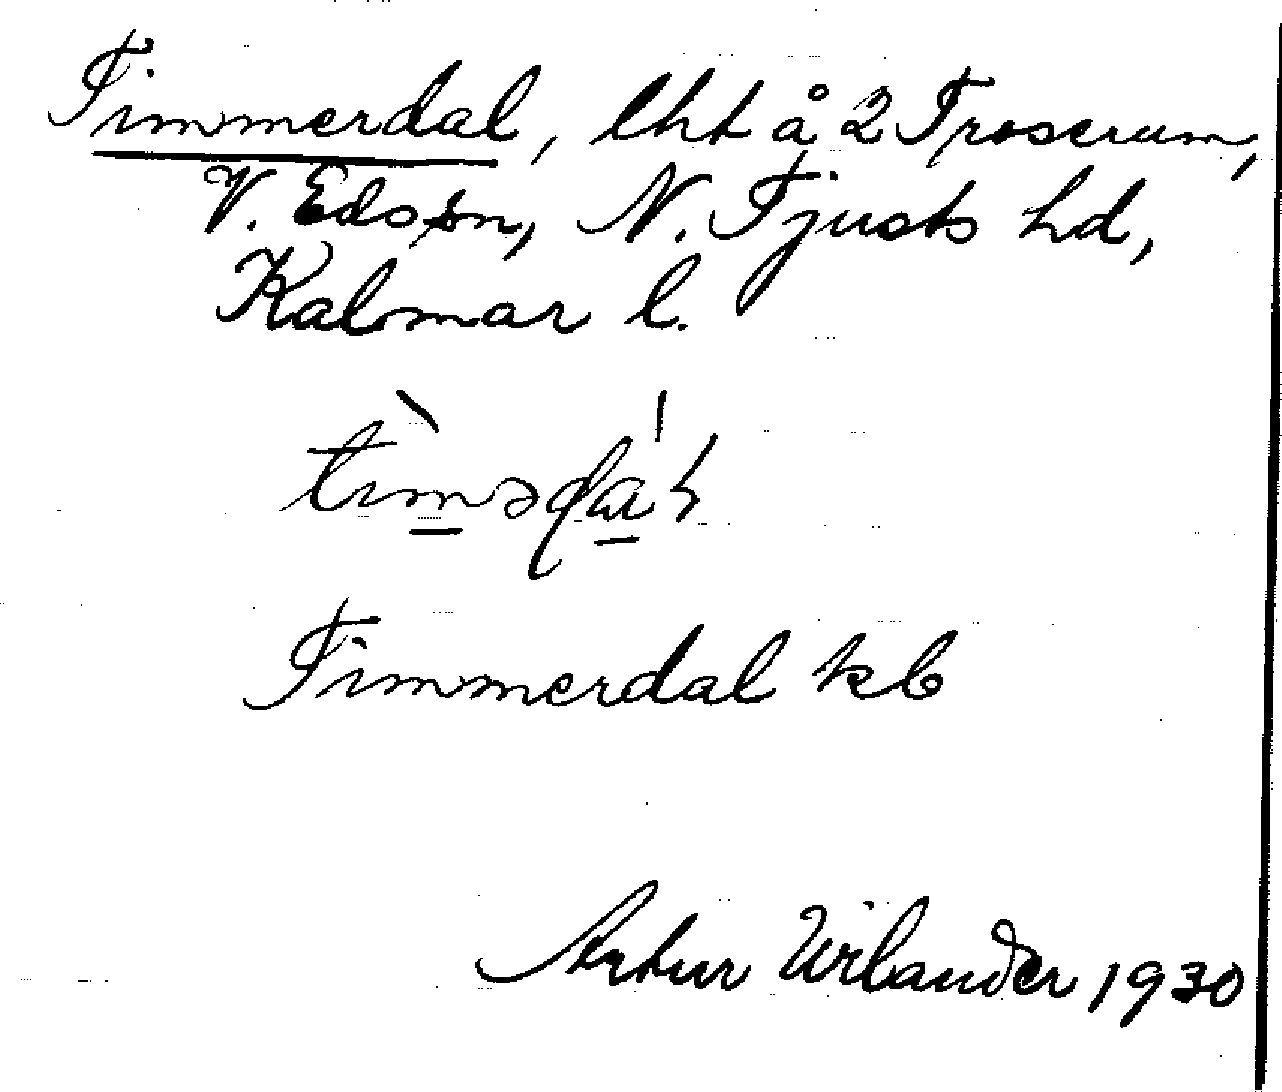 Timmerdal, lht å 2 Troserum,
V. Eds sn, N. Tjusts hd,
Kalmar l.
Timmerdal kb
Artur Wilander 1930